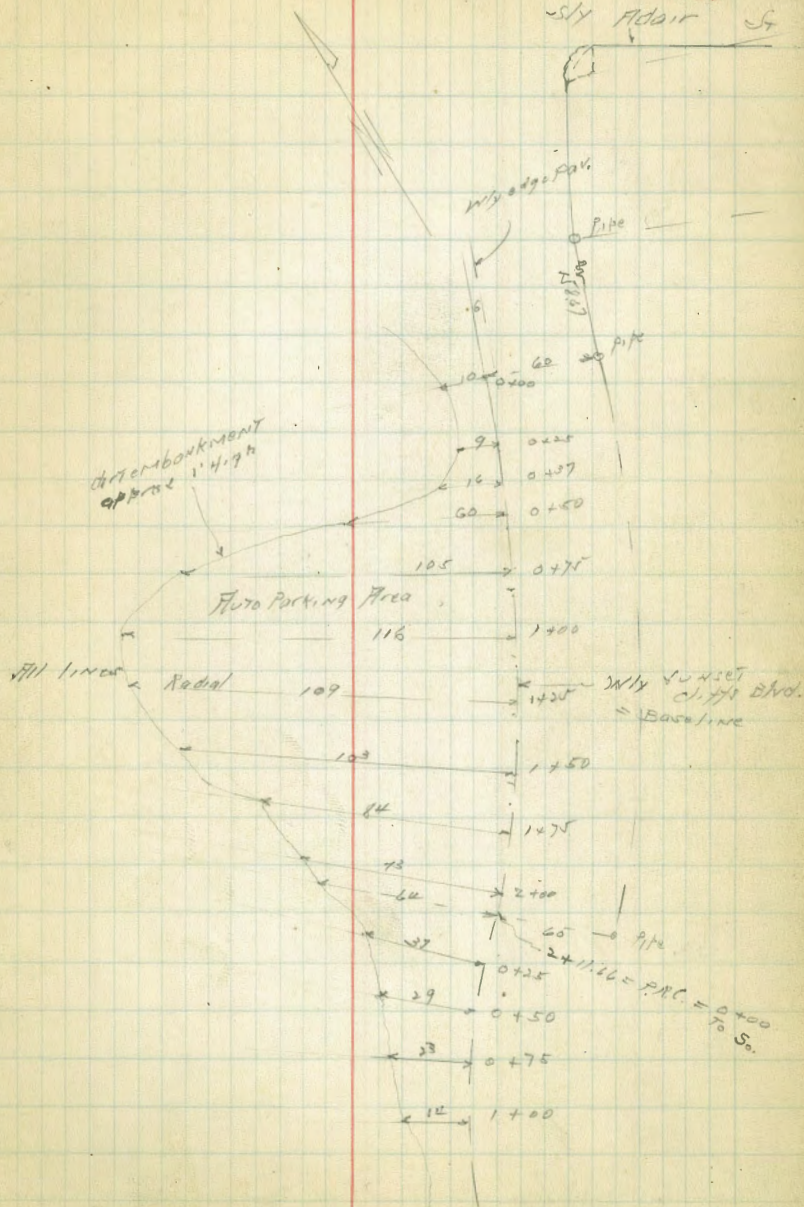 Sly Adair St
Wly edge Pav.
Pipe
.6
Pipe
10 0+00 60
9 0+25
16 0+37
60 0+50
dirt embankment
approx 1' high
105 0+75
Auto Parking Area
116 1+00
All lines Radial
109 1+25
Wly Sunset
Cliffs Blvd.
= Baseline
103 1+50
84 1+75
73 2+00
64 60 Pipe
2+11.66 = P.R.C. = 0+00
To So.
37 0+25
29 0+50
23 0+75
1+00